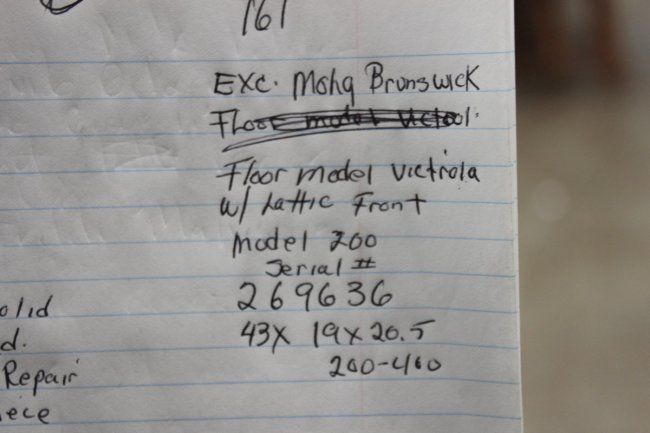 161
Exc. Mohg Brunswick
Floor model Victrola
w/ Lattic Front
Model 200
Serial #
269636
43x 19x20.5
200-400
olid
d.
Repair
iece